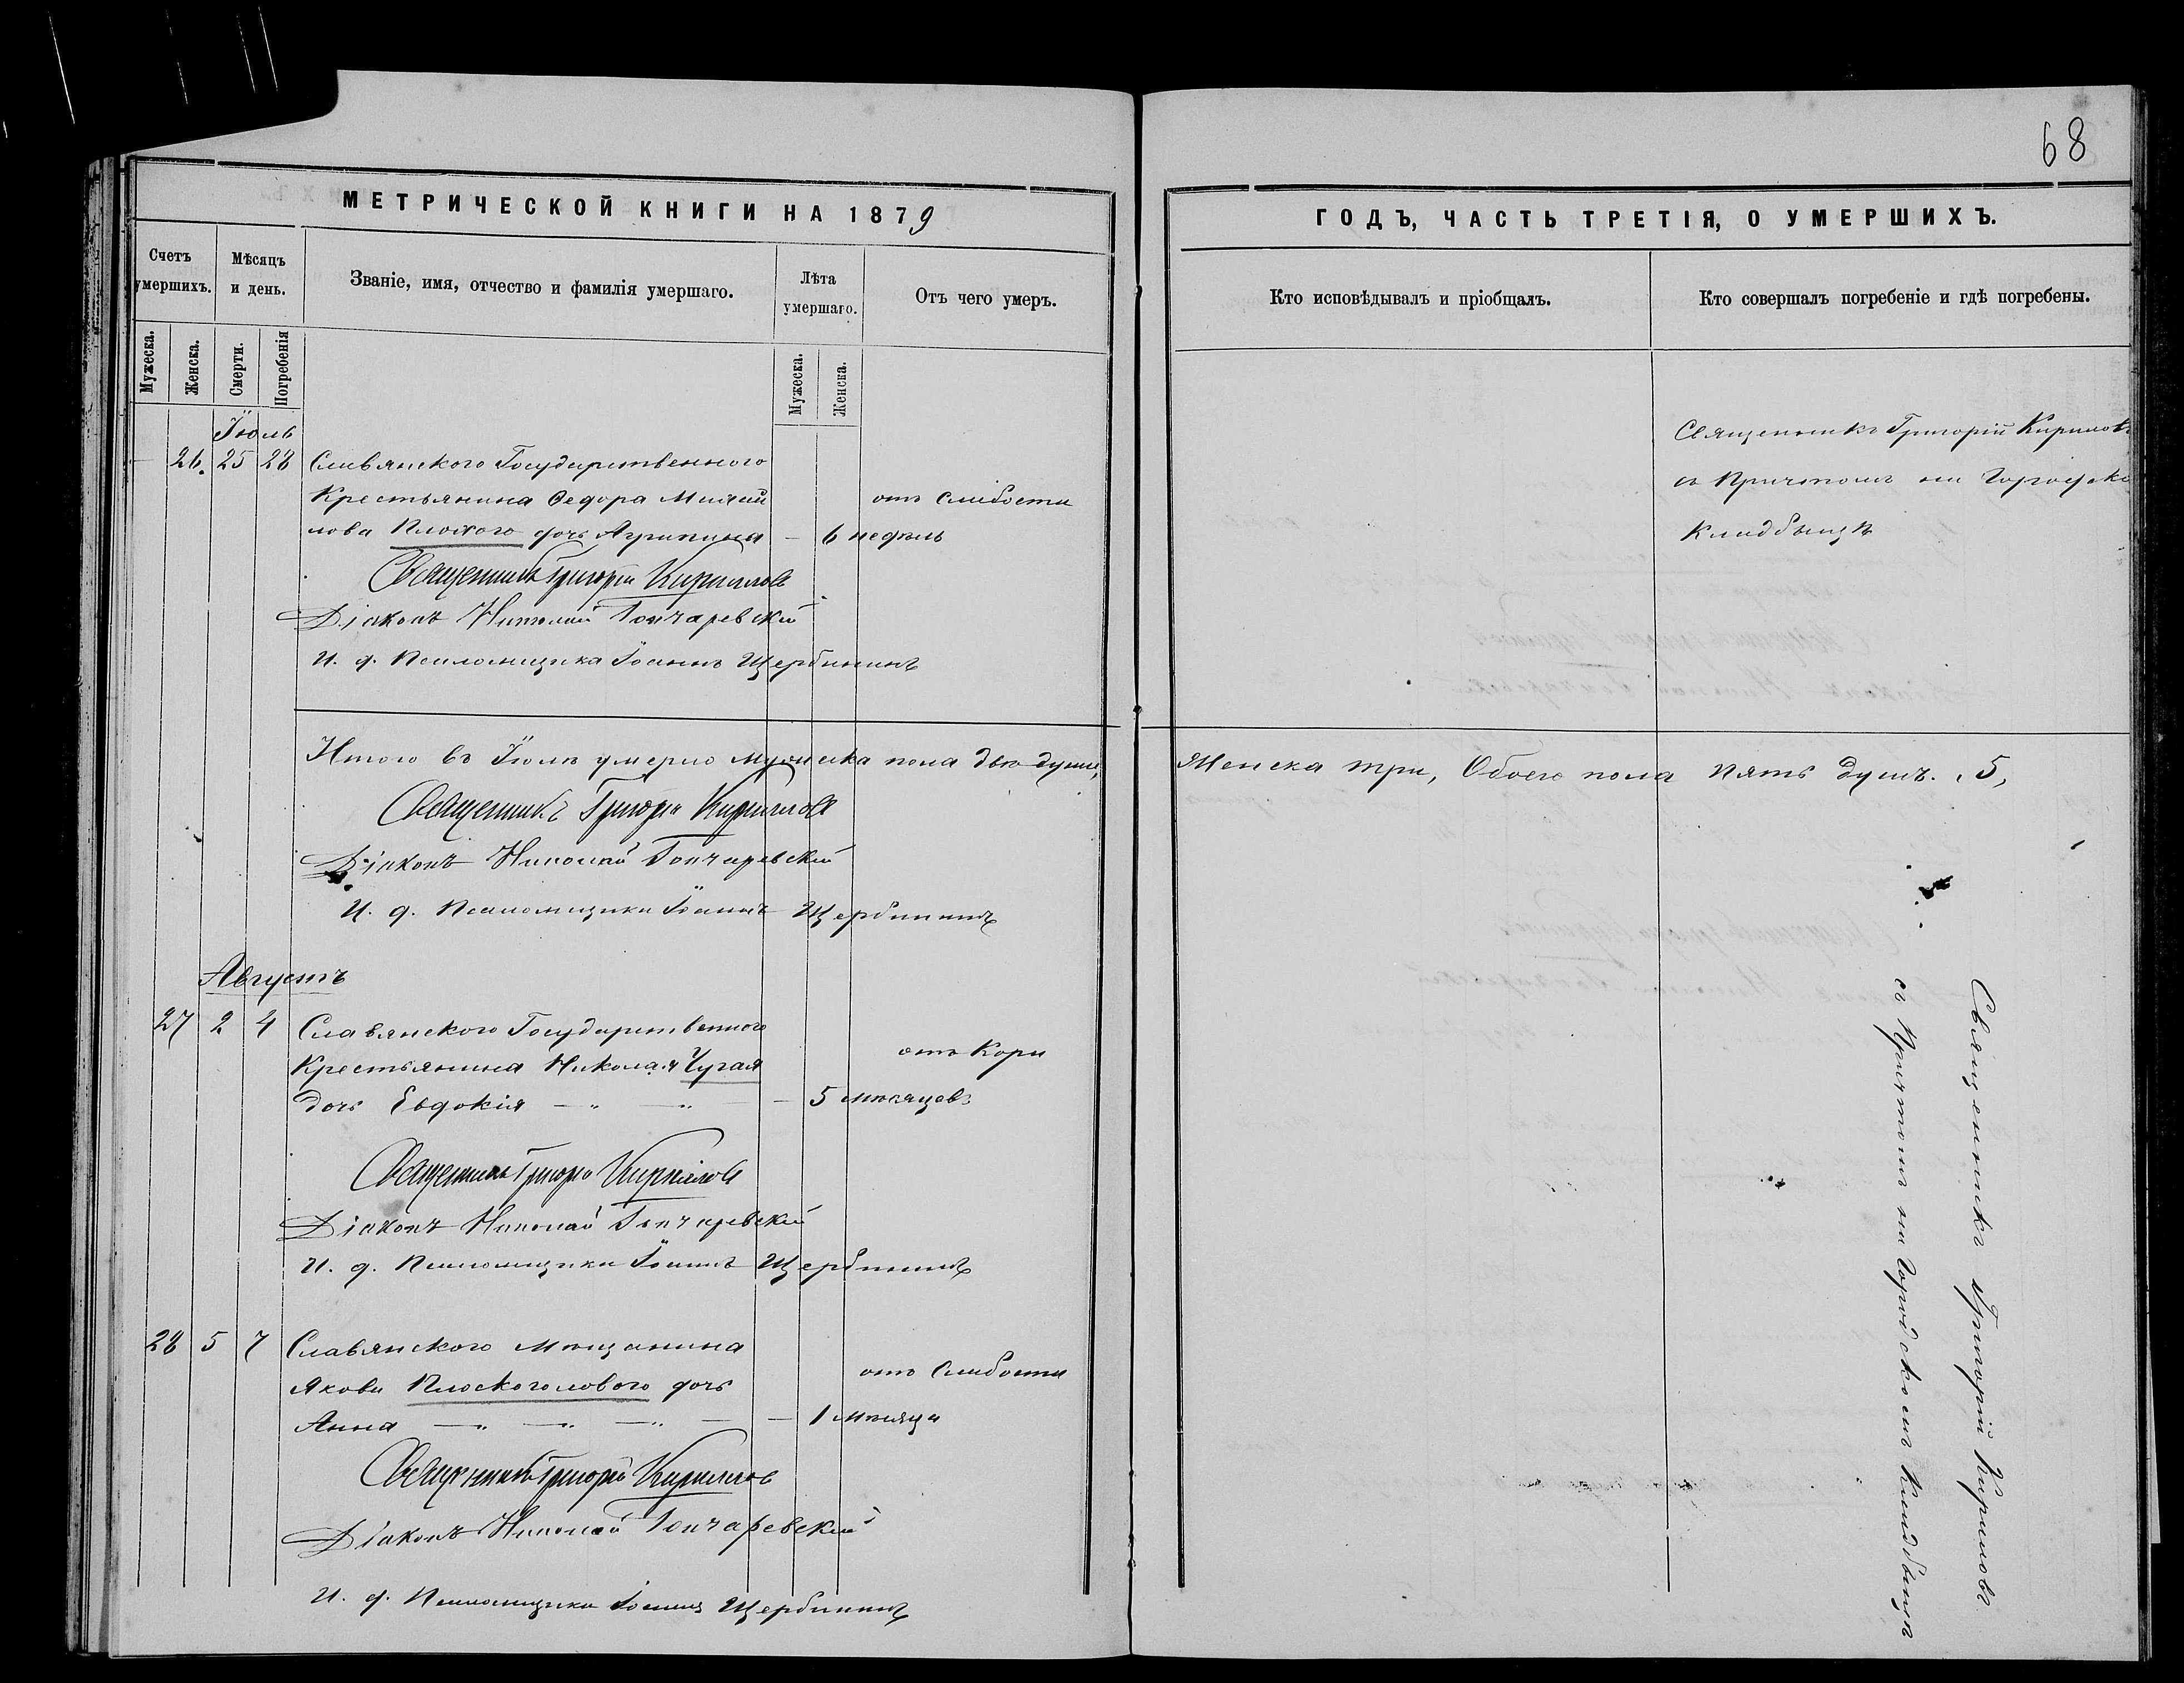 68
МЕТРИЧЕСКОЙ КНИГИ НА 1879
ГОДЪ, ЧАСТЬ ТРЕТІЯ, О УМЕРШИХЪ.
Счетъ умершихъ.
Мѣсяцъ и день.
Званіе, имя, отчество и фамилія умершаго.
Лѣта умершаго.
Отъ чего умеръ.
Кто исповѣдывалъ и пріобщалъ.
Кто совершалъ погребеніе и гдѣ погребены.
Мужеска.
Женска.
Смерти.
Погребенія
Мужеска.
Женска.
Іюль
26. 25 28 Славянского Государственного
Крестьянина Федора Михай отъ слабости
лова Плоского дочь Агрипина — 6 недѣль
Священникъ Григорій Кирилловъ
Діаконъ Николай Гончаревскій
И. д. Псаломщика Іоаннъ Щербининъ
Священникъ Григорій Кириловъ
съ Причтомъ на Городско
Кладбищѣ
Итого въ Іюлѣ умерло мужеска пола двѣ души, Женска три, Обоего пола пять душъ. „5„
Священникъ Григорій Кирилловъ
Діаконъ Николай Гончаревскій
И. д. Псаломщика Іоаннъ Щербининъ
Августъ
27 2 4 Славянского Государственного
Крестьянина Николая Чугая отъ Кори
дочь Евдокія — „ — „ — 5 мѣсяцевъ
Священникъ Григорій Кирилловъ
Діаконъ Николай Гончаревскій
И. д. Псаломщика Іоаннъ Щербининъ
28 5 7 Славянского мѣщанина
Якова Плоскоголового дочь отъ Слабости
Анна — „ — „ — „ — — 1 мѣсяца
Священникъ Григорій Кирилловъ
Діаконъ Николай Гончаревскій
И. д. Псаломщика Іоаннъ Щербининъ
Священникъ Григорій Кириловъ
съ Причтомъ на Городскомъ Кладбищѣ